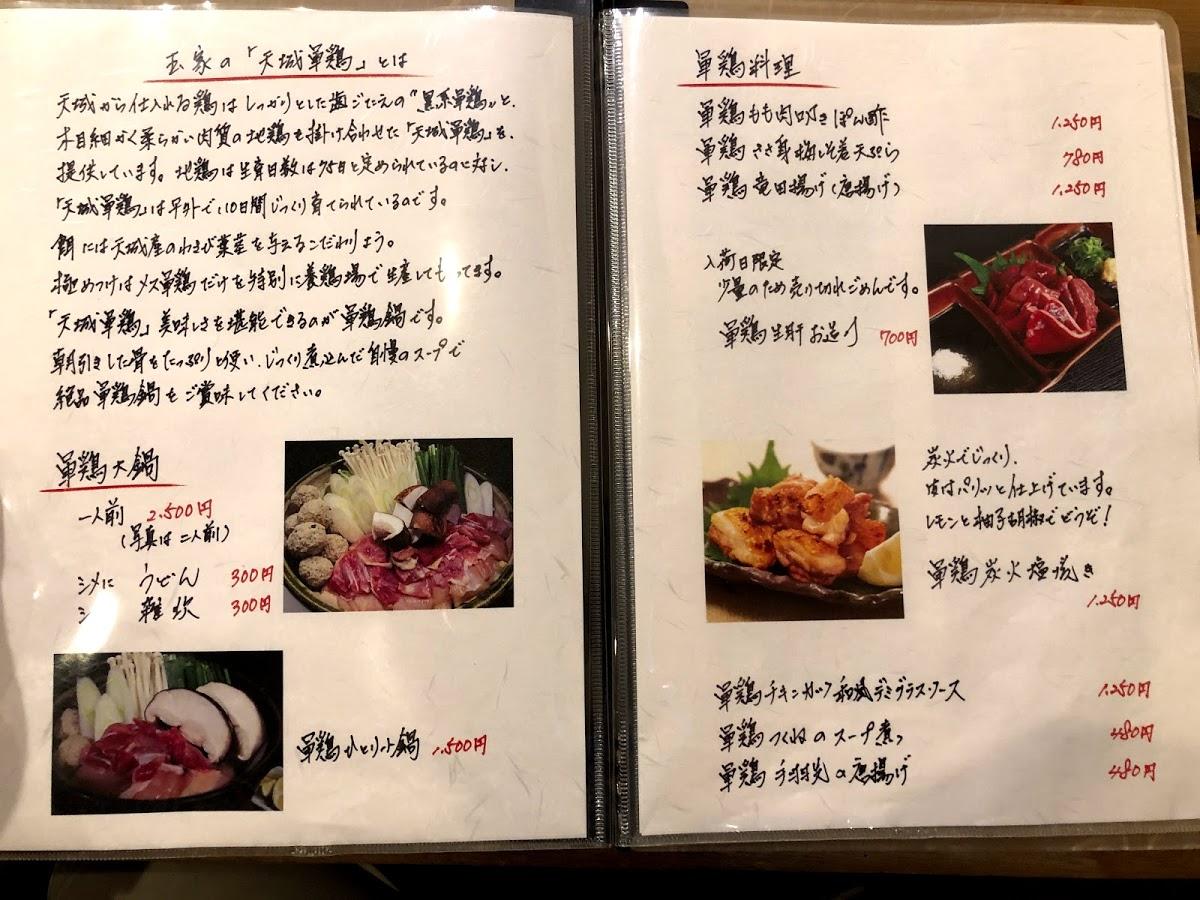 玉家の「天城軍鶏」とは
天城から仕入れる鶏はしっかりとした歯ごたえの"黒系軍鶏"と、
木目細かく柔らかい肉質の地鶏を掛け合わせた「天城軍鶏」を、
提供しています。地鶏は生産日数は75日と定められているのに対し、
「天城軍鶏」は平外で110日間じっくり育てられているのです。
餌には天城産のわさび葉茎を与えるこだわりよう。
極めつけはメス軍鶏だけを特別に養鶏場で生産してもってます。
「天城軍鶏」美味しさを堪能できるのが軍鶏鍋です。
朝引きした骨をたっぷりと使い、じっくり煮込んだ自慢のスープで
絶品軍鶏鍋をご賞味してください。
軍鶏大鍋
一人前 2,500円
(写真は二人前)
シメに うどん 300円
シ 雑炊 300円
軍鶏ひとり小鍋 1,500円
軍鶏料理
軍鶏もも肉叩きぽん酢 1,250円
軍鶏ささ身梅しそ巻天ぷら 780円
軍鶏竜田揚げ(唐揚げ) 1,250円
入荷日限定
少量のため売り切れごめんです。
軍鶏生肝お造り 700円
炭火でじっくり、
皮はパリッと仕上げています。
レモンと柚子胡椒でどうぞ!
軍鶏炭火塩焼き
1,250円
軍鶏チキンカツ和風デミグラスソース 1,250円
軍鶏つくねのスープ煮 480円
軍鶏手羽先の唐揚げ 480円